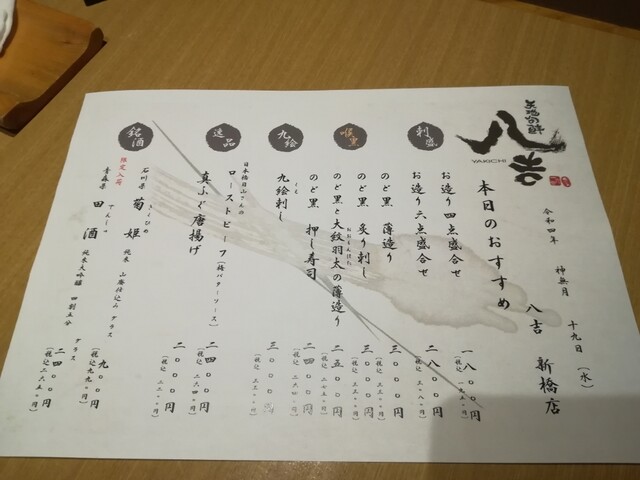 美酒旬鮮
八吉
YAKICHI
令和四年 神無月 十九日 (水)
八吉 新橋店
本日のおすすめ
刺盛
お造り四点盛合せ 一八〇〇円
お造り六点盛合せ 二八〇〇円
(税込 三〇八〇円)
喉黒
のど黒 薄造り 三〇〇〇円
(税込 三三〇〇円)
のど黒 炙り刺し 三〇〇〇円
(税込 三三〇〇円)
のど黒と大紋羽太の薄造り 二五〇〇円
のど黒 押し寿司 二四〇〇円
九絵
くえ
九絵刺し 三〇〇〇円
(税込 三三〇〇円)
逸品
日本橋日山さんの
ローストビーフ(梅バターソース) 二四〇〇円
(税込 二六四〇円)
真ふぐ唐揚げ 二〇〇〇円
(税込 二二〇〇円)
銘酒
石川県 菊姫 純米 山廃仕込み グラス 九〇〇円
きくひめ
(税込 九九〇円)
限定入荷
青森県 田酒 純米大吟醸 四割五分 グラス 二四〇〇円
でんしゅ
(税込 二六四〇円)